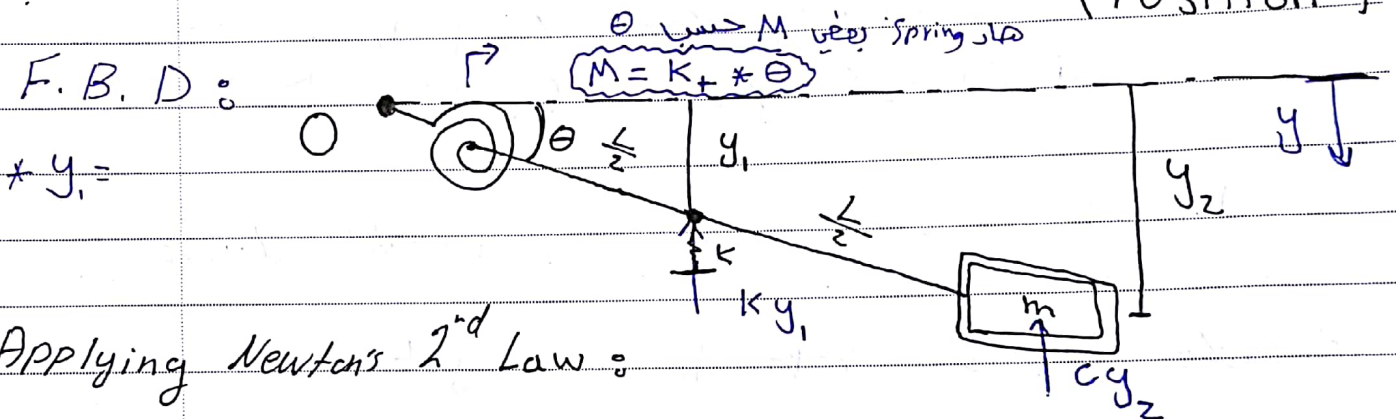 هاد Spring يعطي M حسب θ
F. B. D :
M = K_t * θ
O
θ
L/2
y₁
y
* y₁ =
y₂
L/2
K
K y₁
m
Applying Newton's 2nd Law :
c y₂